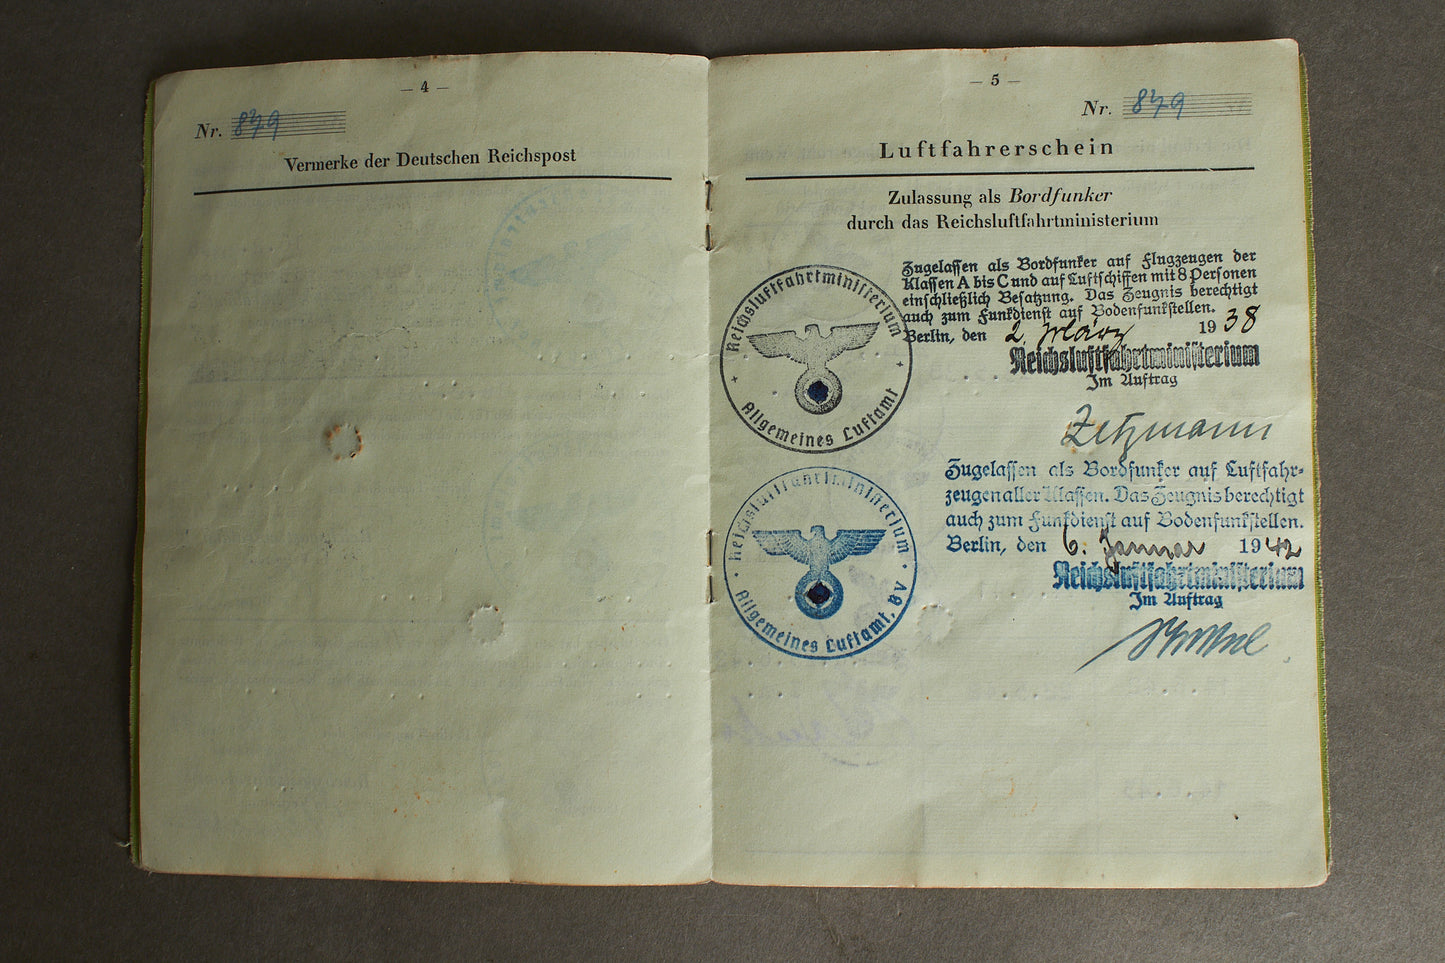 — 4 —
Nr. 879
Vermerke der Deutschen Reichspost
— 5 —
Nr. 879
Luftfahrerschein
Zulassung als Bordfunker
durch das Reichsluftfahrtministerium
Zugelassen als Bordfunker auf Flugzeugen der
Klassen A bis C und auf Luftschiffen mit 8 Personen
einschließlich Besatzung. Das Zeugnis berechtigt
auch zum Funkdienst auf Bodenfunkstellen.
Berlin, den 2. März 1938
Reichsluftfahrtministerium
Im Auftrag
Reichsluftfahrtministerium
Allgemeines Luftamt
Zugelassen als Bordfunker auf Luftfahr-
zeugen aller Klassen. Das Zeugnis berechtigt
auch zum Funkdienst auf Bodenfunkstellen.
Berlin, den 6. Januar 1942
Reichsluftfahrtministerium
Im Auftrag
Reichsluftfahrtministerium
Allgemeines Luftamt, BV